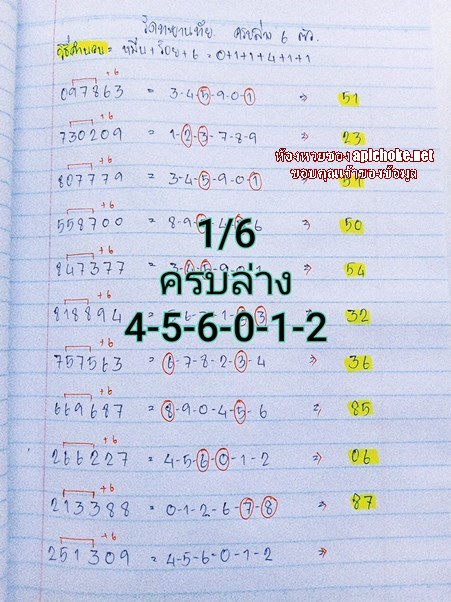 วิทยานทัย ครบล่าง 6 ตัว.
วิธีคำนวบ = หมื่น + ร้อย + 6 = 0+1+1+4+1+1
+6
097863 = 3-4-5-9-0-1 => 51
+6
730209 = 1-2-3-7-8-9 => 23
+6
807779 = 3-4-5-9-0-1 => 51
ห้องหวยซอง aplchoke.net
ขอบคุณเจ้าของข้อมูล
+6
558700 = 8-9- -4- -6 => 50
1/6
+6
847377 = 3- -5-9-0-1 => 54
ครบล่าง
+6
818894 = -6-7-1- -3 => 32
4-5-6-0-1-2
+6
757563 = 6-7-8-2-3-4 => 36
+6
669687 = 8-9-0-4-5-6 => 85
+6
266227 = 4-5-6-0-1-2 => 06
+6
213388 = 0-1-2-6-7-8 => 87
+6
251309 = 4-5-6-0-1-2 =>